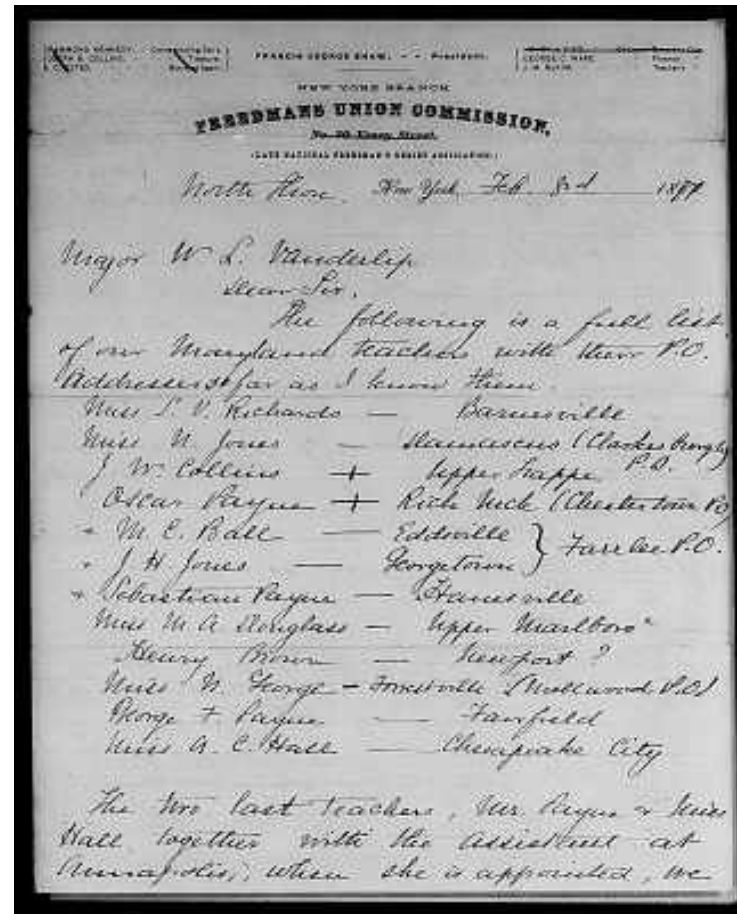 FRANCIS GEORGE SHAW, - - President.
GEORGE C. WARD,
NEW YORK BRANCH
FREEDMANS UNION COMMISSION,
No. 30 Vesey Street
(LATE NATIONAL FREEDMAN'S RELIEF ASSOCIATION.)
New York, Feb 3rd
Major W L. Vanderlip
Dear Sir,
The following is a full list
of our Maryland teachers with their P.O.
Addresses so far as I know them.
Miss S. V. Richards — Barnesville
Miss N. Jones — Damascus (Clarkes P.O.
J W. Collins + Upper Trappe
Oscar Payne + Rich Neck (Chestertown PO)
M. E. Ball — Eddsville
J H Jones — Georgetown } Farrlee P.O.
Sebastian Payne — Hanesville
Miss M A Douglass — Upper Marlboro
Henry Brown — Newport ?
Miss N. George — Forestville P.O)
George F. Payne — Fairfield
Miss A. C. Hall — Chesapeake City
The two last teachers, Mr. Payne & Miss
Hall together with the Assistant at
Annapolis, when she is appointed, we